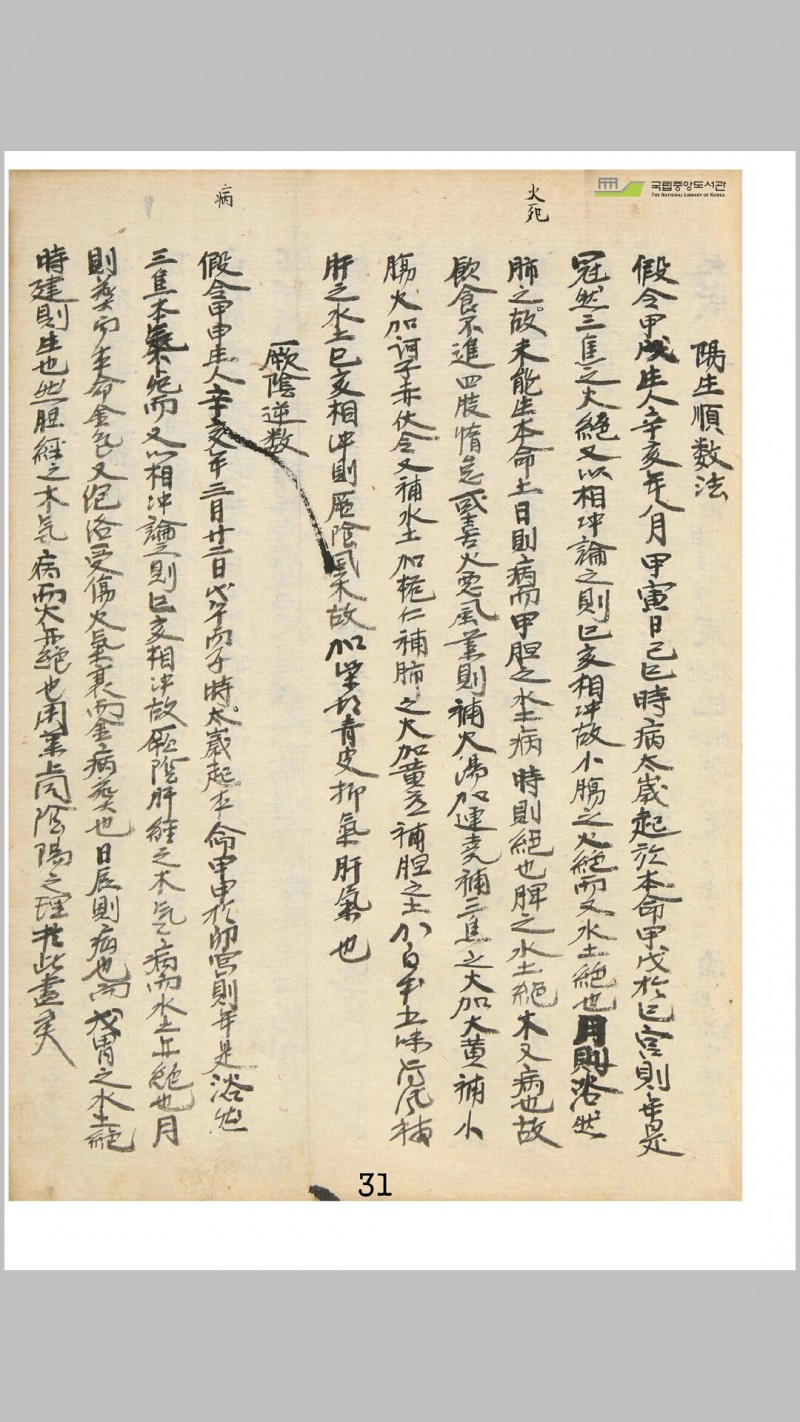 국립중앙도서관
THE NATIONAL LIBRARY OF KOREA
火死
陽生順数法
假令甲戌生人辛亥年八月甲寅日己巳時病太歲起於本命甲戌於巳宮則年是
冠然三焦之火絕又以相冲論之則巳亥相冲故小腸之火絕而又水土絕也月則浴然
肺之故未能生本命土日則病而甲胆之水土病時則絕也脾之水土絕木又病也故
飲食不進四肢惰怠或喜火悪風葉則補火湯加連壳補三焦之火加大黄補小
腸火加訶子赤伏令又補水土加梔仁補肺之火加黄苓補胆之土加白朮五味防風補
肝之水土巳亥相冲則厥陰風木故加柴胡青皮抑氣肝氣也
厥陰逆数
病
假令甲申生人辛亥年三月廿三日戊午丙子時太歲起本命甲申於卯宮則年是浴然
三焦本氣絕而又以相冲論之則巳亥相冲故厥陰肝經之木气病而水土並絕也月
則葬而本命金气又胞洛受傷火氣衰而金病葬也日辰則病也而戊胃之水土絕
時建則生也然胆經之木氣病而火並絕也用葉上同陰陽之理於此盡矣
31